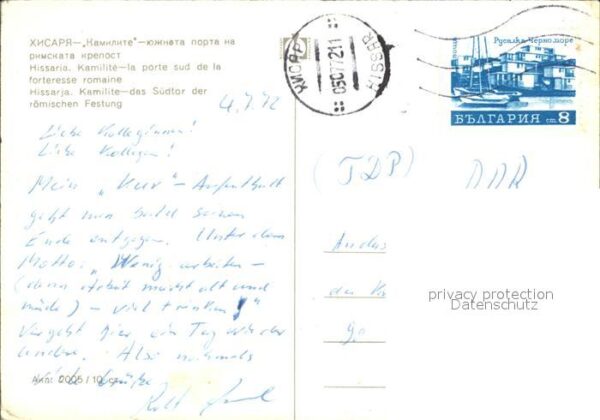 ХИСАРЯ—„Камилите"—южната порта на
римската крепост
Hissaria. Kamilité—la porte sud de la
forteresse romaine
Hissarja. Kamilite—das Südtor der
römischen Festung
4.7.72
Liebe Kolleginnen!
Liebe Kollegen!
Mein „Kur"-Aufenthalt
geht nun bald seinem
Ende entgegen. Unter dem
Motto: „Wenig arbeiten –
(denn Arbeit macht alt und
müde) – viel trinken!"
vergeht hier ein Tag wie der
andere. Also nochmals
Grüße
Акл. 2005 / 10 ст.
ХИСАР
HISSAR
Русалка Черноморе
БЪЛГАРИЯ ст 8
(ГДР) DDR
An das
privacy protection
Datenschutz